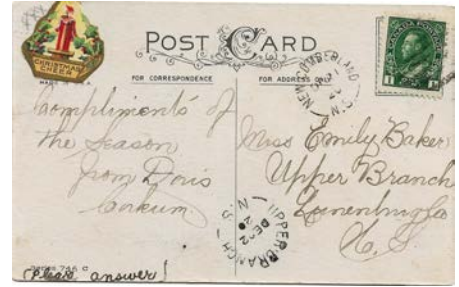 CHRISTMAS
CHEER
POST CARD
FOR CORRESPONDENCE
FOR ADDRESS ONLY
CANADA POSTAGE
1 1
Compliments of
the Season
from Doris
Corkum
Miss Emily Baker
Upper Branch
Lunenburg Co
N. S.
UPPER BRANCH N.S.
DE 22
Please answer!